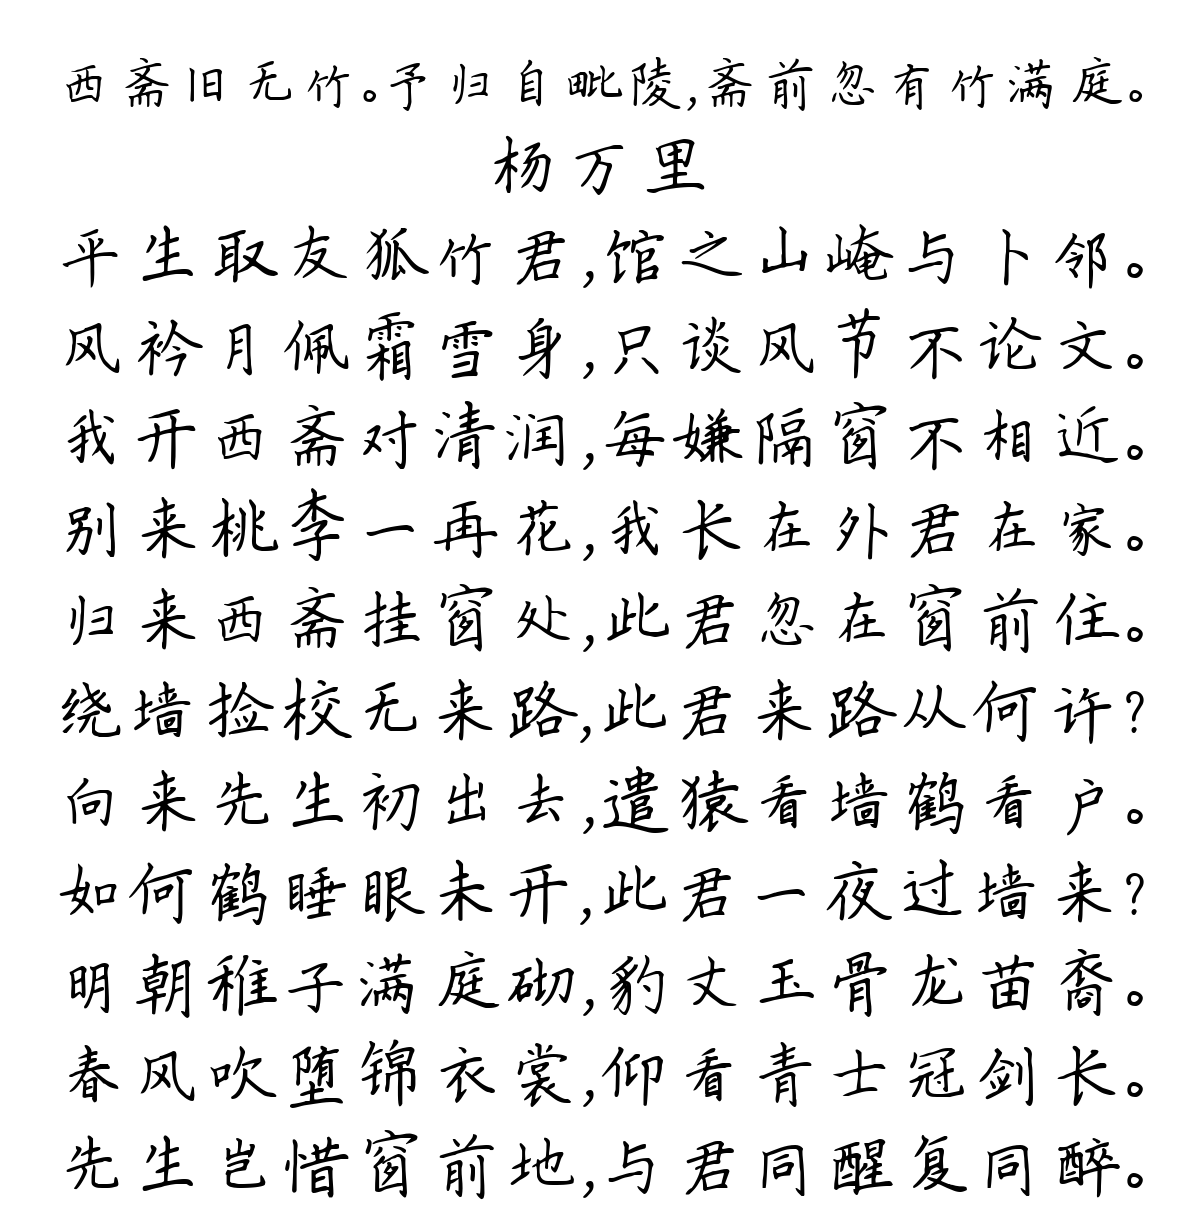 西斋旧无竹。予归自毗陵,斋前忽有竹满庭。
杨万里
平生取友狐竹君,馆之山崦与卜邻。
风衿月佩霜雪身,只谈风节不论文。
我开西斋对清润,每嫌隔窗不相近。
别来桃李一再花,我长在外君在家。
归来西斋挂窗处,此君忽在窗前住。
绕墙捡校无来路,此君来路从何许?
向来先生初出去,遣猿看墙鹤看户。
如何鹤睡眼未开,此君一夜过墙来?
明朝稚子满庭砌,豹丈玉骨龙苗裔。
春风吹堕锦衣裳,仰看青士冠剑长。
先生岂惜窗前地,与君同醒复同醉。